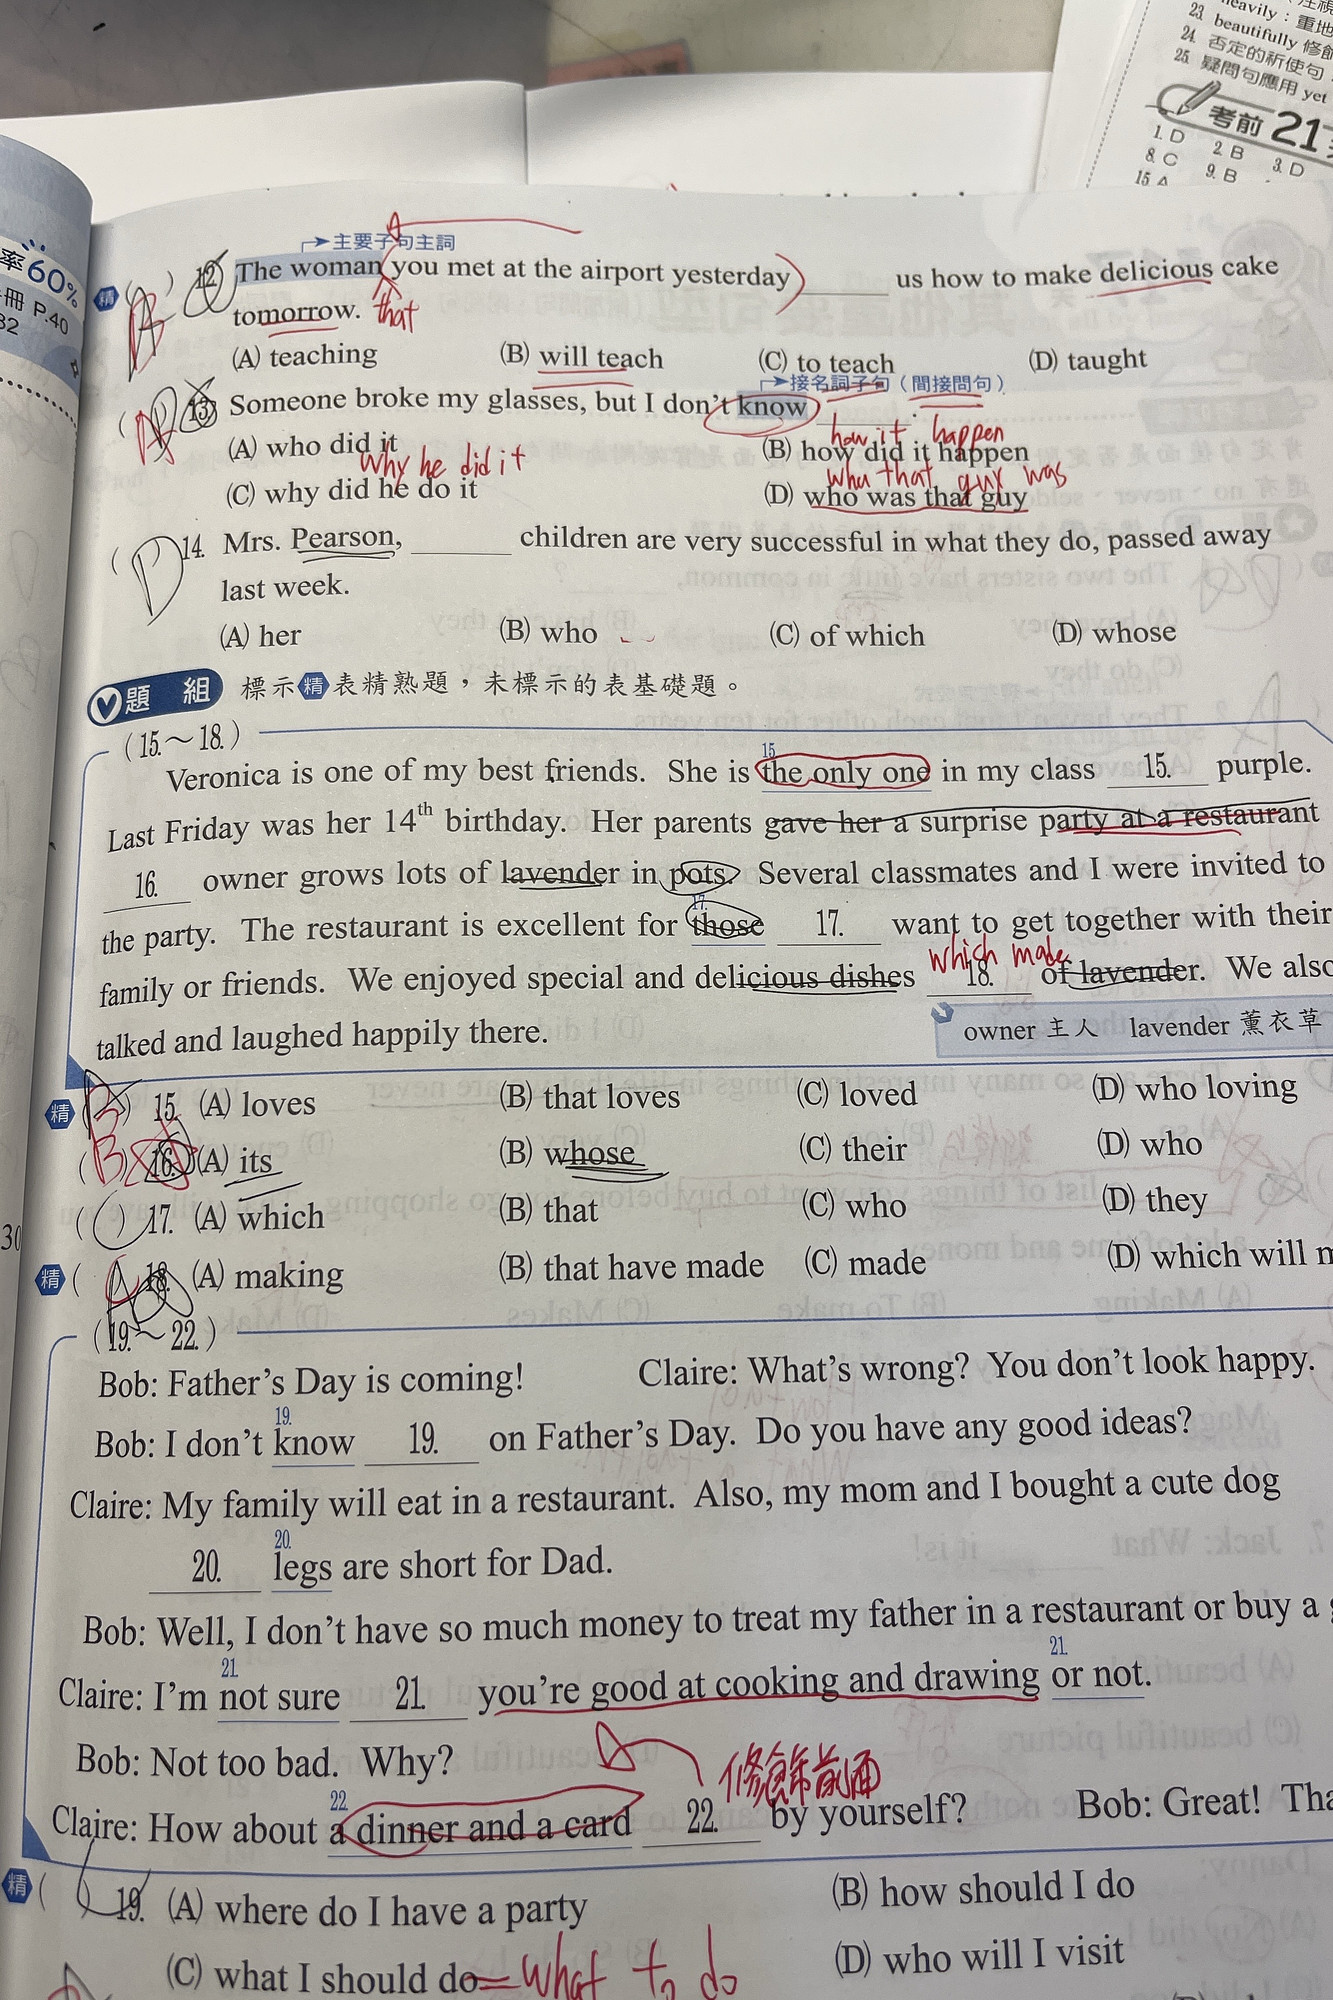 heavily：重地
23. beautifully 修飾
24. 否定的祈使句
25. 疑問句應用 yet
考前 21
1. D 2. B 3. D
8. C 9. B
15. A
率60%
冊 P.40
32
主要子句主詞
精 ( B ) 12. The woman you met at the airport yesterday ______ us how to make delicious cake
tomorrow. that
(A) teaching (B) will teach (C) to teach (D) taught
接名詞子句（間接問句）
( A ) 13. Someone broke my glasses, but I don't know ______.
how it happen
(A) who did it (B) how did it happen
why he did it
who that guy was
(C) why did he do it (D) who was that guy
( D ) 14. Mrs. Pearson, ______ children are very successful in what they do, passed away
last week.
(A) her (B) who (C) of which (D) whose
題組 標示精表精熟題，未標示的表基礎題。
(15.～18.)
15
Veronica is one of my best friends. She is the only one in my class 15. purple.
Last Friday was her 14th birthday. Her parents gave her a surprise party at a restaurant
16. owner grows lots of lavender in pots. Several classmates and I were invited to
17.
the party. The restaurant is excellent for those 17. want to get together with their
which made
family or friends. We enjoyed special and delicious dishes 18. of lavender. We also
talked and laughed happily there.
owner 主人 lavender 薰衣草
精 ( B ) 15. (A) loves (B) that loves (C) loved (D) who loving
( B ) 16. (A) its (B) whose (C) their (D) who
( C ) 17. (A) which (B) that (C) who (D) they
30
精 ( ) 18. (A) making (B) that have made (C) made (D) which will
(19.～22.)
Bob: Father's Day is coming! Claire: What's wrong? You don't look happy.
19.
Bob: I don't know 19. on Father's Day. Do you have any good ideas?
Claire: My family will eat in a restaurant. Also, my mom and I bought a cute dog
20.
20. legs are short for Dad.
Bob: Well, I don't have so much money to treat my father in a restaurant or buy a
21. 21.
Claire: I'm not sure 21. you're good at cooking and drawing or not.
Bob: Not too bad. Why?
修飾前面
22
Claire: How about a dinner and a card 22. by yourself? Bob: Great!
精 ( ) 19. (A) where do I have a party (B) how should I do
(C) what I should do = what to do (D) who will I visit